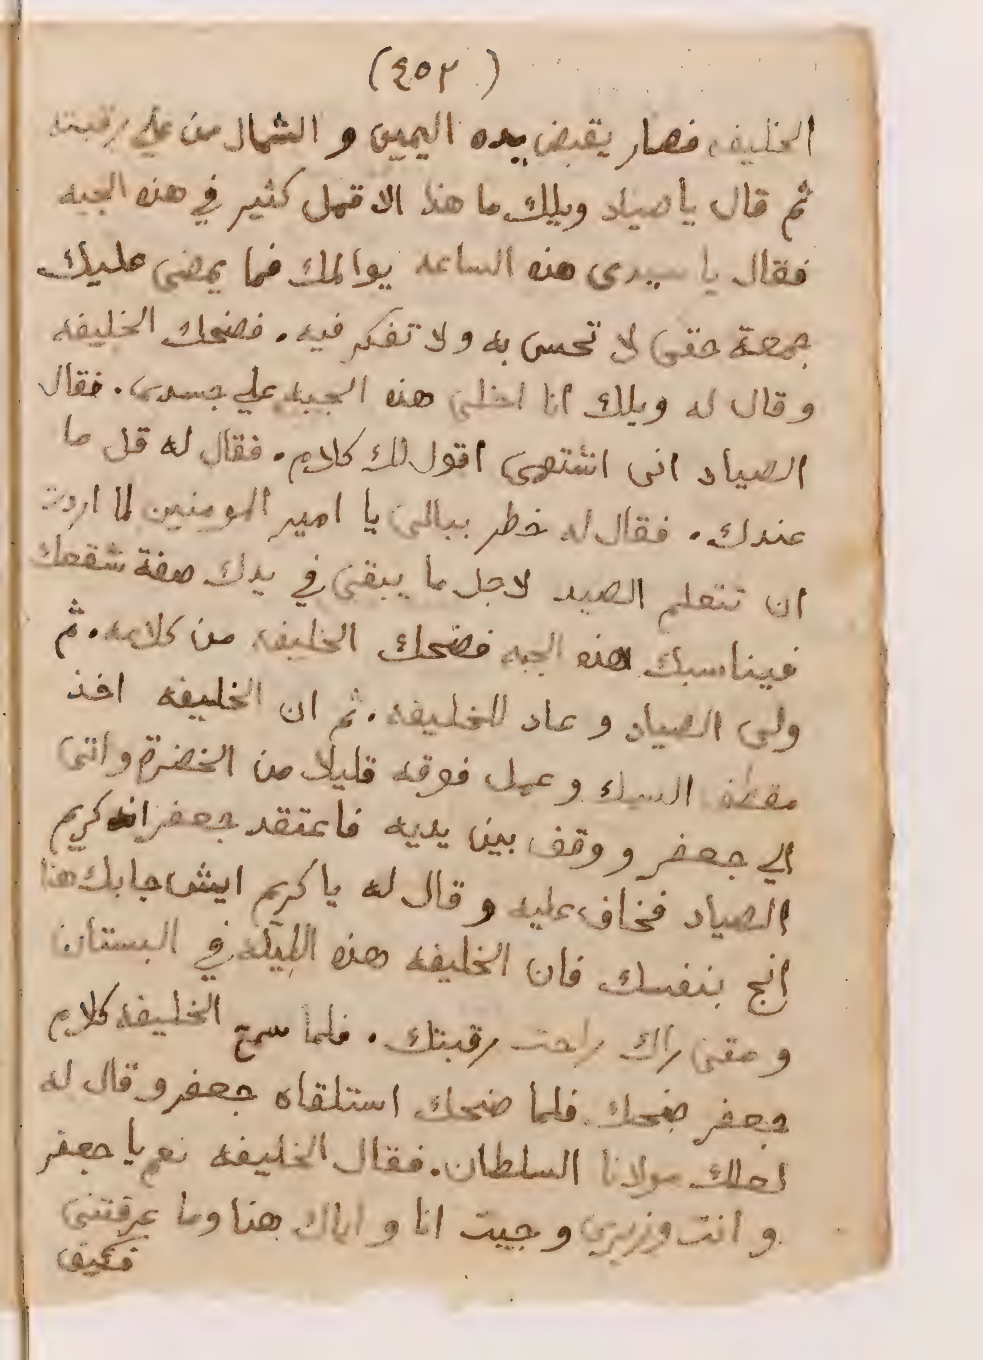 (٤٥٢)
الخليفه فصار يقبض بيده اليمين و الشمال من علي رقبته
ثم قال يا صياد ويلك ما هذا الا قمل كثير في هذه الجبه
فقال يا سيدى هذه الساعه يوالمك فما يمضى عليك
جمعة حتى لا تحس به ولا تفكر فيه . فضحك الخليفه
وقال له ويلك انا اخلى هذه الجبه علي جسدى . فقال
الصياد انى اشتهى اقول لك كلام . فقال له قل ما
عندك . فقال له خطر ببالى يا امير المومنين لما اردت
ان تتعلم الصيد لاجل ما يبقى في يدك صفة شقعك
فيناسبك هذه الجبه فضحك الخليفه من كلامه . ثم
ولى الصياد و عاد للخليفه . ثم ان الخليفه اخذ
مقطف السمك و عمل فوقه قليلا من الخضرة واتى
الي جعفر و وقف بين يديه فاعتقد جعفر انه كريم
الصياد فخاف عليه و قال له يا كريم ايش جابك هنا
انج بنفسك فان الخليفه هذه الليله في البستان
و متى راك راحت رقبتك . فلما سمع الخليفه كلام
جعفر ضحك فلما ضحك استلقاه جعفر و قال له
لعلك مولانا السلطان . فقال الخليفه نعم يا جعفر
و انت وزيرى و جيت انا و اياك هنا وما عرفتنى
فكيف